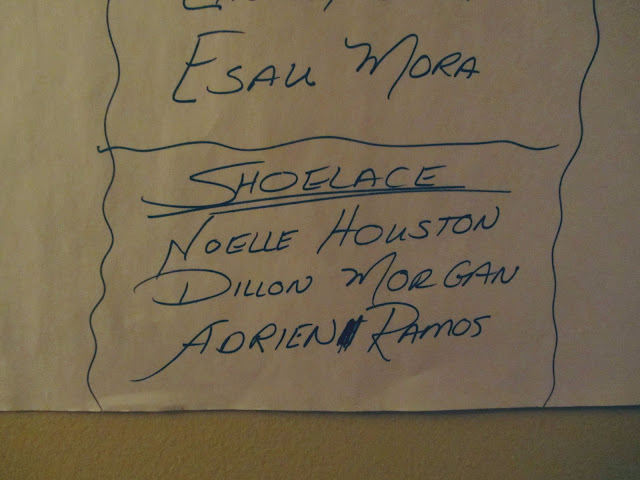 ESAU MORA
SHOELACE
NOELLE HOUSTON
DILLON MORGAN
ADRIEN RAMOS